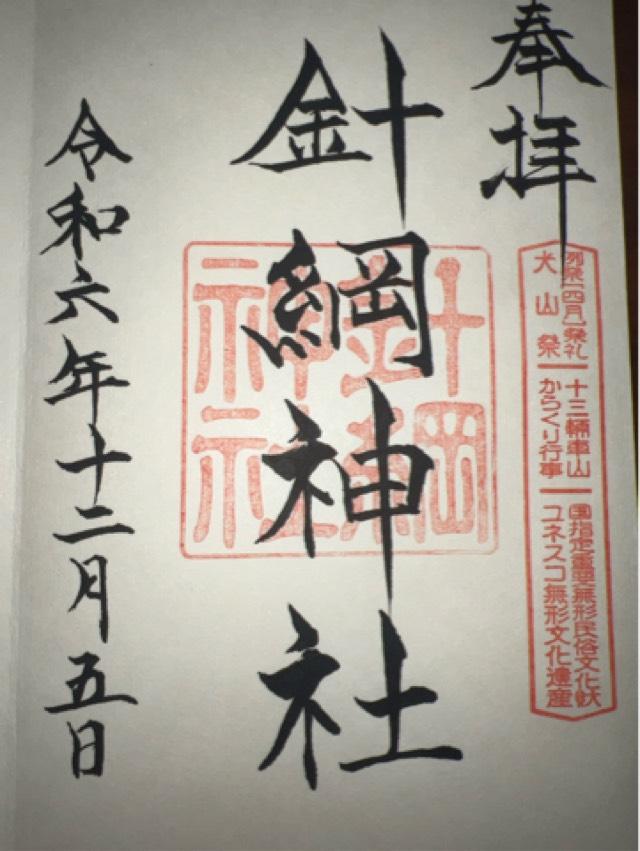 奉拝
例祭(四月)祭礼
犬山祭
十三輌車山
からくり行事
国指定重要無形民俗文化財
ユネスコ無形文化遺産
針綱神社
針綱神社
令和六年十二月五日